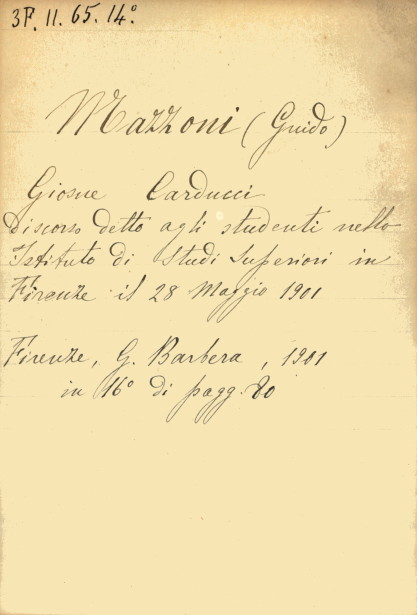 3F. 11. 65. 14º
Mazzoni (Guido)
Giosue Carducci
Discorso detto agli studenti nello
Istituto di Studi Superiori in
Firenze il 28 Maggio 1901
Firenze, G. Barbera, 1901
in 16º di pagg. 80